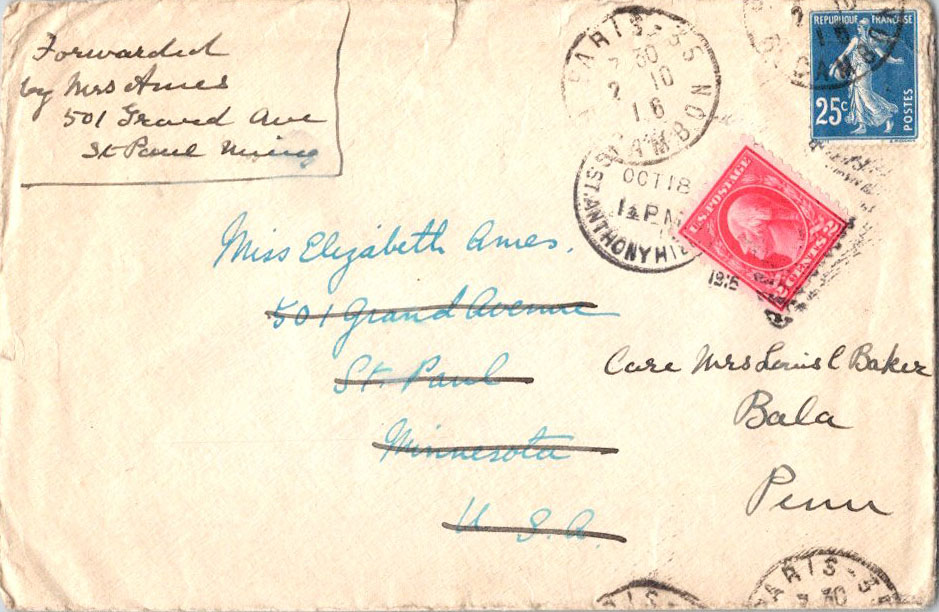 Forwarded
by Mrs Ames
501 Grand Ave
St Paul Minn
PARIS-35
7 30
2 10
16
RÉPUBLIQUE FRANÇAISE
25c
POSTES
ST. ANTHONY HILL
OCT 18
PM
1916
U.S. POSTAGE
2 CENTS 2
Miss Elizabeth Ames.
501 Grand Avenue
St. Paul
Minnesota
U. S. A.
Care Mrs Louis C Baker
Bala
Penn
PARIS-35
PARIS-35
7 30